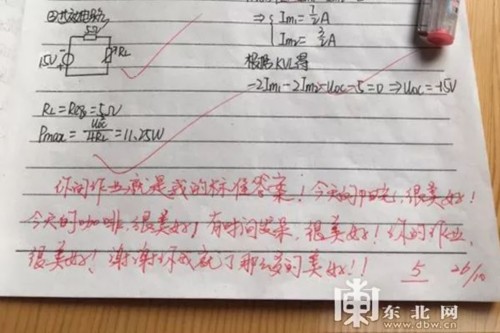 15V
RL
⇒ { Im1 = 1/2 A
Im2 = 3/2 A
根据KVL得
-2Im1-2Im2-Uoc-5=0 ⇒ Uoc=-15V
RL=Req=5Ω
Pmax=Uoc²/4RL=11.25W
你的作业就是我的标准答案！今天的阳光，很美好！
今天的咖啡，很美好！有时间，很美好！你的作业，
很美好！谢谢你成就了那么多的美好！！ 5 26/10
东北网
www.dbw.cn